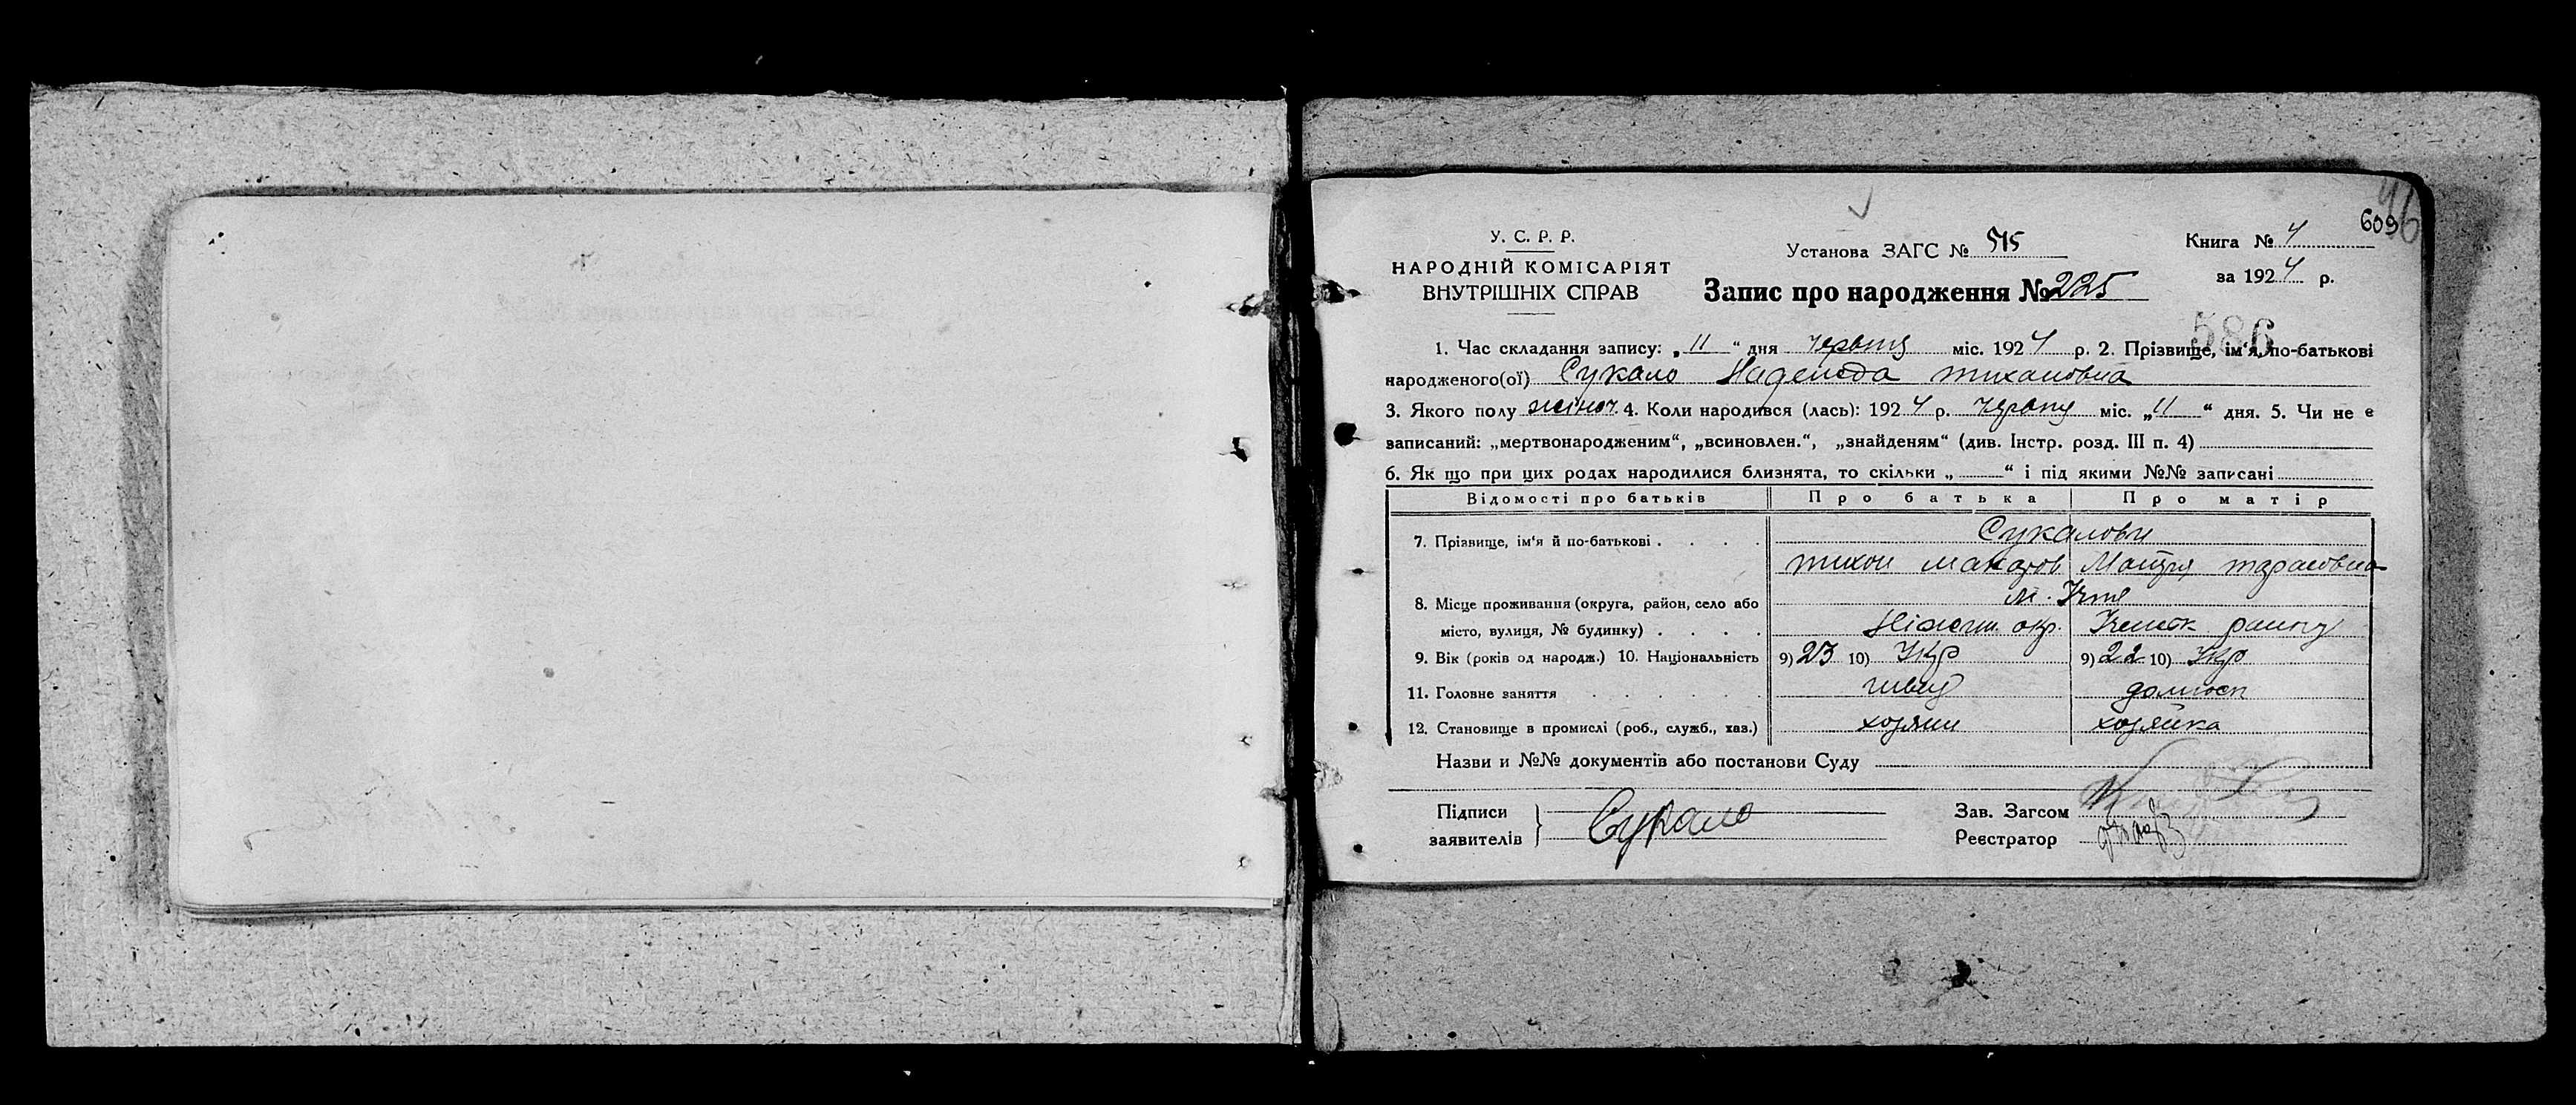 609
У. С. Р. Р.
НАРОДНІЙ КОМІСАРІЯТ
ВНУТРІШНІХ СПРАВ
Установа ЗАГС № 515
Книга № 4
за 1924 р.
Запис про народження № 225
586
1. Час складання запису: „11“ дня червня міс. 1924 р. 2. Прізвище, ім'я, по-батькові
народженого(ої) Сукало Надежда Тихановна
3. Якого полу жіноч. 4. Коли народився (лась): 1924 р. червня міс. „11“ дня. 5. Чи не є
записаний: „мертвонародженим“, „всиновлен.“, „знайденям“ (див. Інстр. розд. III п. 4)
6. Як що при цих родах народилися близнята, то скільки „ “ і під якими №№ записані
Відомості про батьків Про батька Про матір
Сукаловы
7. Прізвище, ім'я й по-батькові
Тихон Макаров Тарасовна
8. Місце проживання (округа, район, село або м. Ічня
місто, вулиця, № будинку) Ніжин. окр.
9. Вік (років од народж.) 10. Національність 9) 23 10) Укр 9) 22 10) Укр
11. Головне заняття швец
12. Становище в промислі (роб., служб., хаз.) хозяин хозяйка
Назви и №№ документів або постанови Суду
Підписи
заявителів
Сукало
Зав. Загсом
Реєстратор